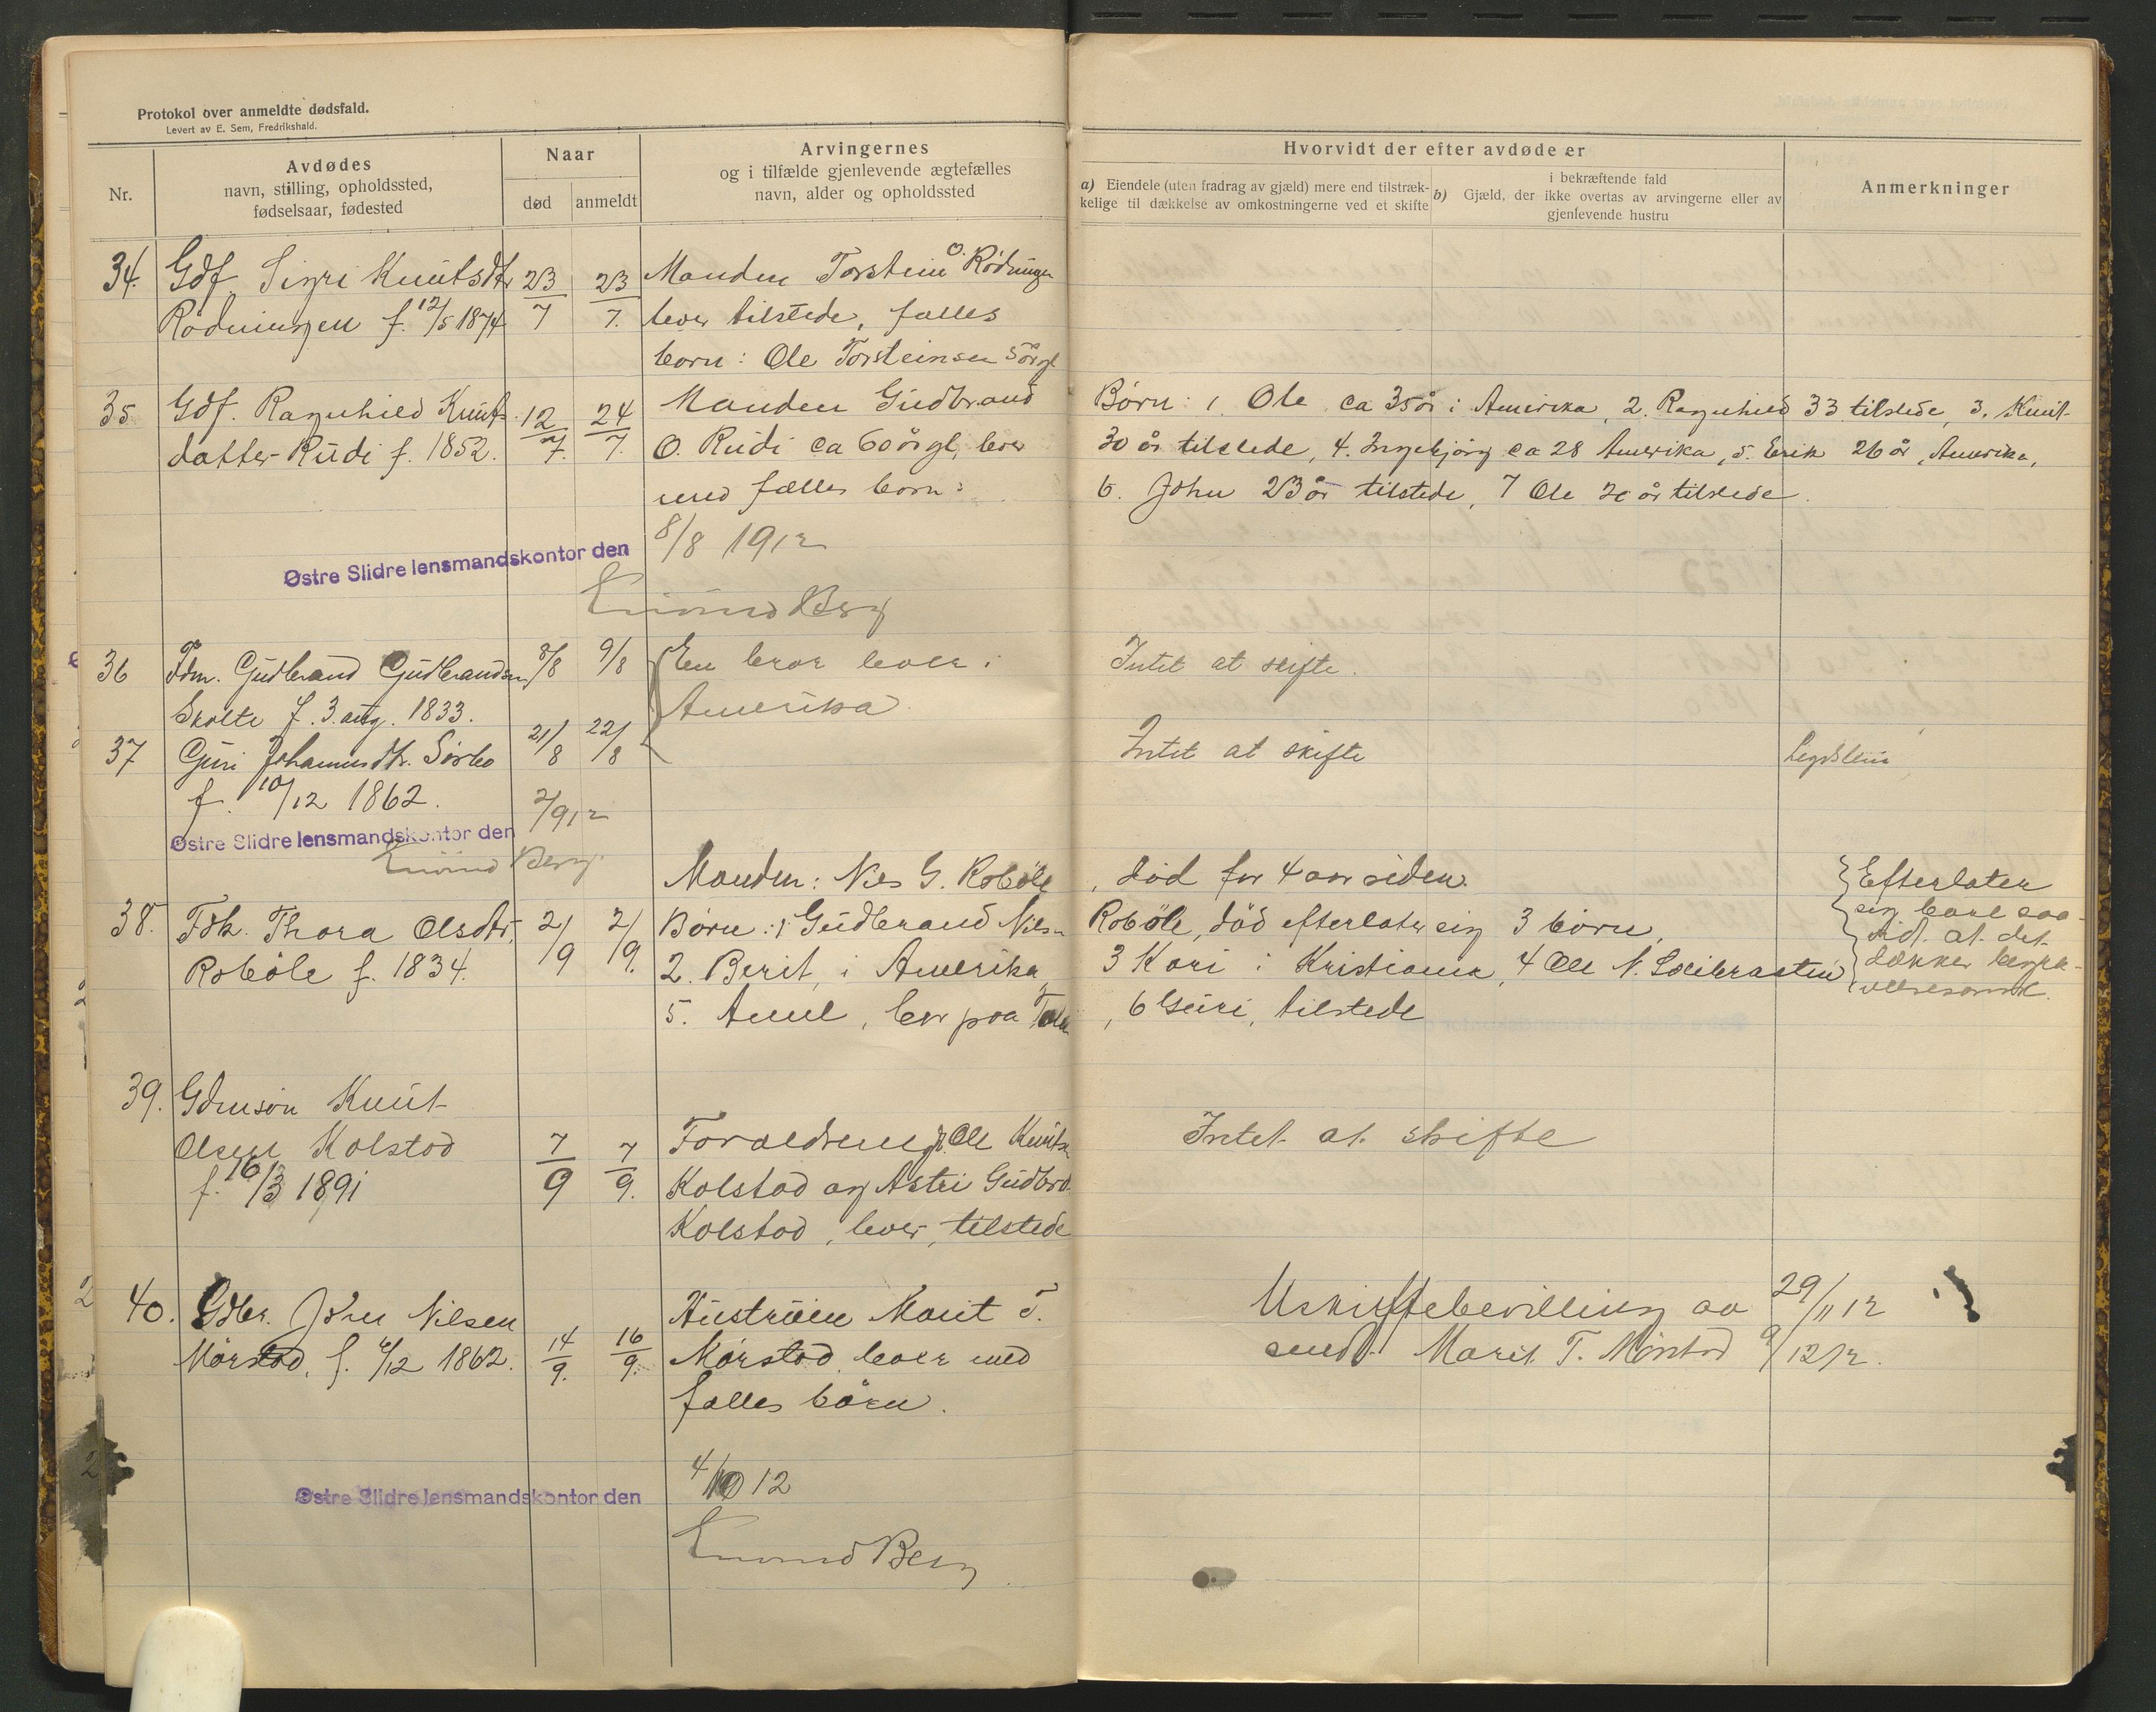 Protokol over anmeldte dødsfald.
Levert av E. Sem, Fredrikshald.
Nr.
Avdødes
navn, stilling, opholdssted,
fødselsaar, fødested
Naar
død
anmeldt
Arvingernes
og i tilfælde gjenlevende ægtefælles
navn, alder og opholdssted
Hvorvidt der efter avdøde er
a) Eiendele (uten fradrag av gjæld) mere end tilstræk-
kelige til dækkelse av omkostningerne ved et skifte
i bekræftende fald
b) Gjæld, der ikke overtas av arvingerne eller av
gjenlevende hustru
Anmerkninger
34. Gdf. Sigri Knutsdtr 23/7 23/7. Manden Torstein O. Rødningen
Rødningen f. 12/5 1874 lever tilstede, fælles
børn: Ole Torsteinsen 5 år gl
35 Gdf. Ragnhild Knuts- 12/7. 24/7. Manden Gudbrand Børn: 1. Ole ca 35 år i Amerika, 2. Ragnhild 33 tilstede, 3. Knut
datter Rudi f. 1852. O. Rudi ca 60 år gl, lever 30 år tilstede, 4. Ingebjørg ca 28 Amerika, 5. Erik 26 år, Amerika,
med fælles børn: 6. John 23 år tilstede, 7 Ole 20 år tilstede.
Østre Slidre lensmandskontor den 8/8 1912
Eivind Berg
36 Fdm. Gudbrand Gudbrandsen 8/8 9/8 En bror lever i Intet at skifte.
Skolte f. 3. aug. 1833. Amerika.
37 Guri Johannesdtr. Sørbo 21/8 22/8 Intet at skifte Legdslem
f. 10/12 1862.
Østre Slidre lensmandskontor den 2/9 12
Eivind Berg.
Manden: Nils G. Robøle, død for 4 aar siden.
38. Fdk. Thora Olsdtr. 2/9 2/9. Børn: 1 Gudbrand Nilsn Robøle, død efterlater sig 3 børn,
Robøle f. 1834. 2. Berit, i Amerika, 3 Kari i Kristiania, 4 Ole N.
5. Anne, bor paa, 6 Guri, tilstede
Efterlater
sig bare saa-
vidt at det
dækker begra-
velsesomk.
39. Gdmsøn Knut
Olsen Kolstad 7/9 7/9. Forældrene, Ole Knutsn Intet at skifte
f. 16/3 1891 Kolstad og Astri Gudbrd.
Kolstad, lever, tilstede
40. Gdbr. John Nilsen 14/9. 16/9. Hustruen Marit T. Uskiftebevilling av 29/11 12
Mørstad, f. 6/12 1862. Mørstad lever med sendt Marit T. Mørstad 9/12 12.
fælles børn.
Østre Slidre lensmandskontor den 4/10 12
Eivind Berg